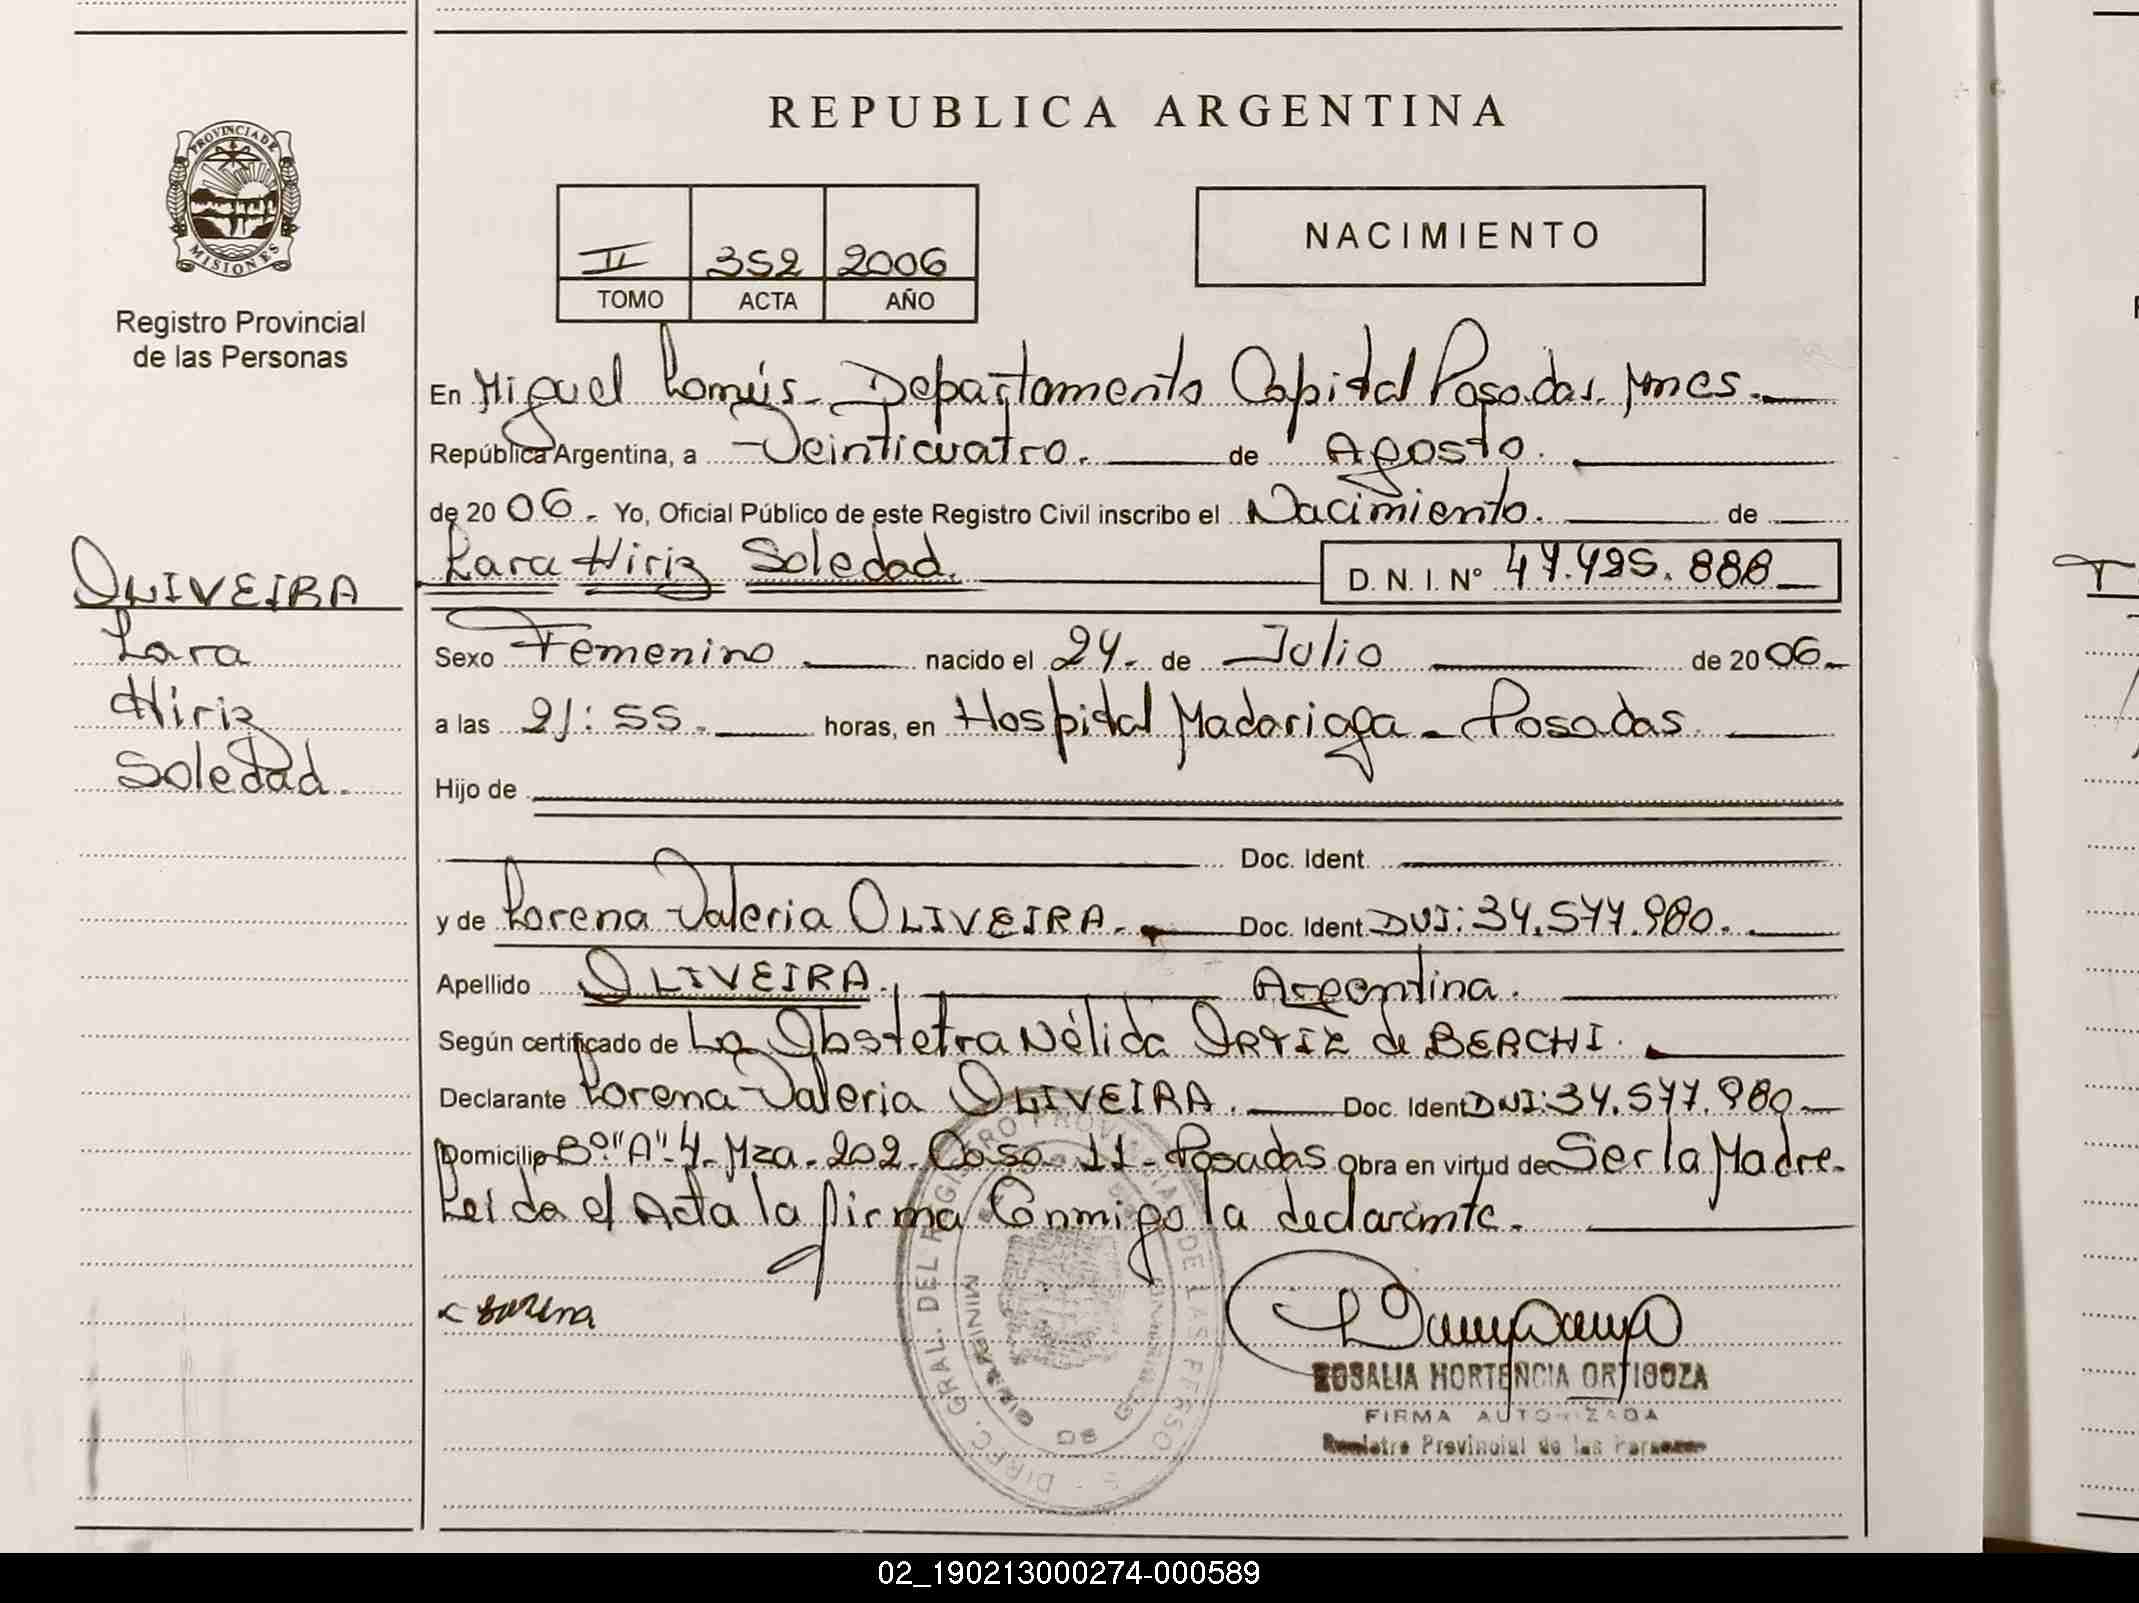 REPUBLICA ARGENTINA
PROVINCIA DE
MISIONES
Registro Provincial
de las Personas
II 352 2006
TOMO ACTA AÑO
NACIMIENTO
En Miguel Lanús - Departamento Capital Posadas. Mnes.
República Argentina, a Veinticuatro. de Agosto.
de 2006. Yo, Oficial Público de este Registro Civil inscribo el Nacimiento. de
Lara Hiriz Soledad. D. N. I. Nº 47.495.888
OLIVEIRA
Lara
Hiriz
Soledad.
Sexo Femenino nacido el 24. de Julio de 2006.
a las 21:55. horas, en Hospital Madariaga - Posadas
Hijo de
Doc. Ident.
y de Lorena Valeria OLIVEIRA. Doc. Ident DNI: 34.577.980.
Apellido OLIVEIRA. Argentina.
Según certificado de La Obstetra Nélida ORTIZ de BERCHI.
Declarante Lorena Valeria OLIVEIRA. Doc. Ident DNI: 34.577.980
Domicilio Bº "A"-4. Mza. 202. Casa 11 - Posadas obra en virtud de Ser la Madre.
Leida el Acta la firma Conmigo la declarante.
Lorena
ROSALIA HORTENCIA ORTIGOZA
FIRMA AUTORIZADA
Registro Provincial de las Personas
DIREC. GRAL. DEL REGISTRO PROVINCIAL DE LAS PERSO
02_190213000274-000589